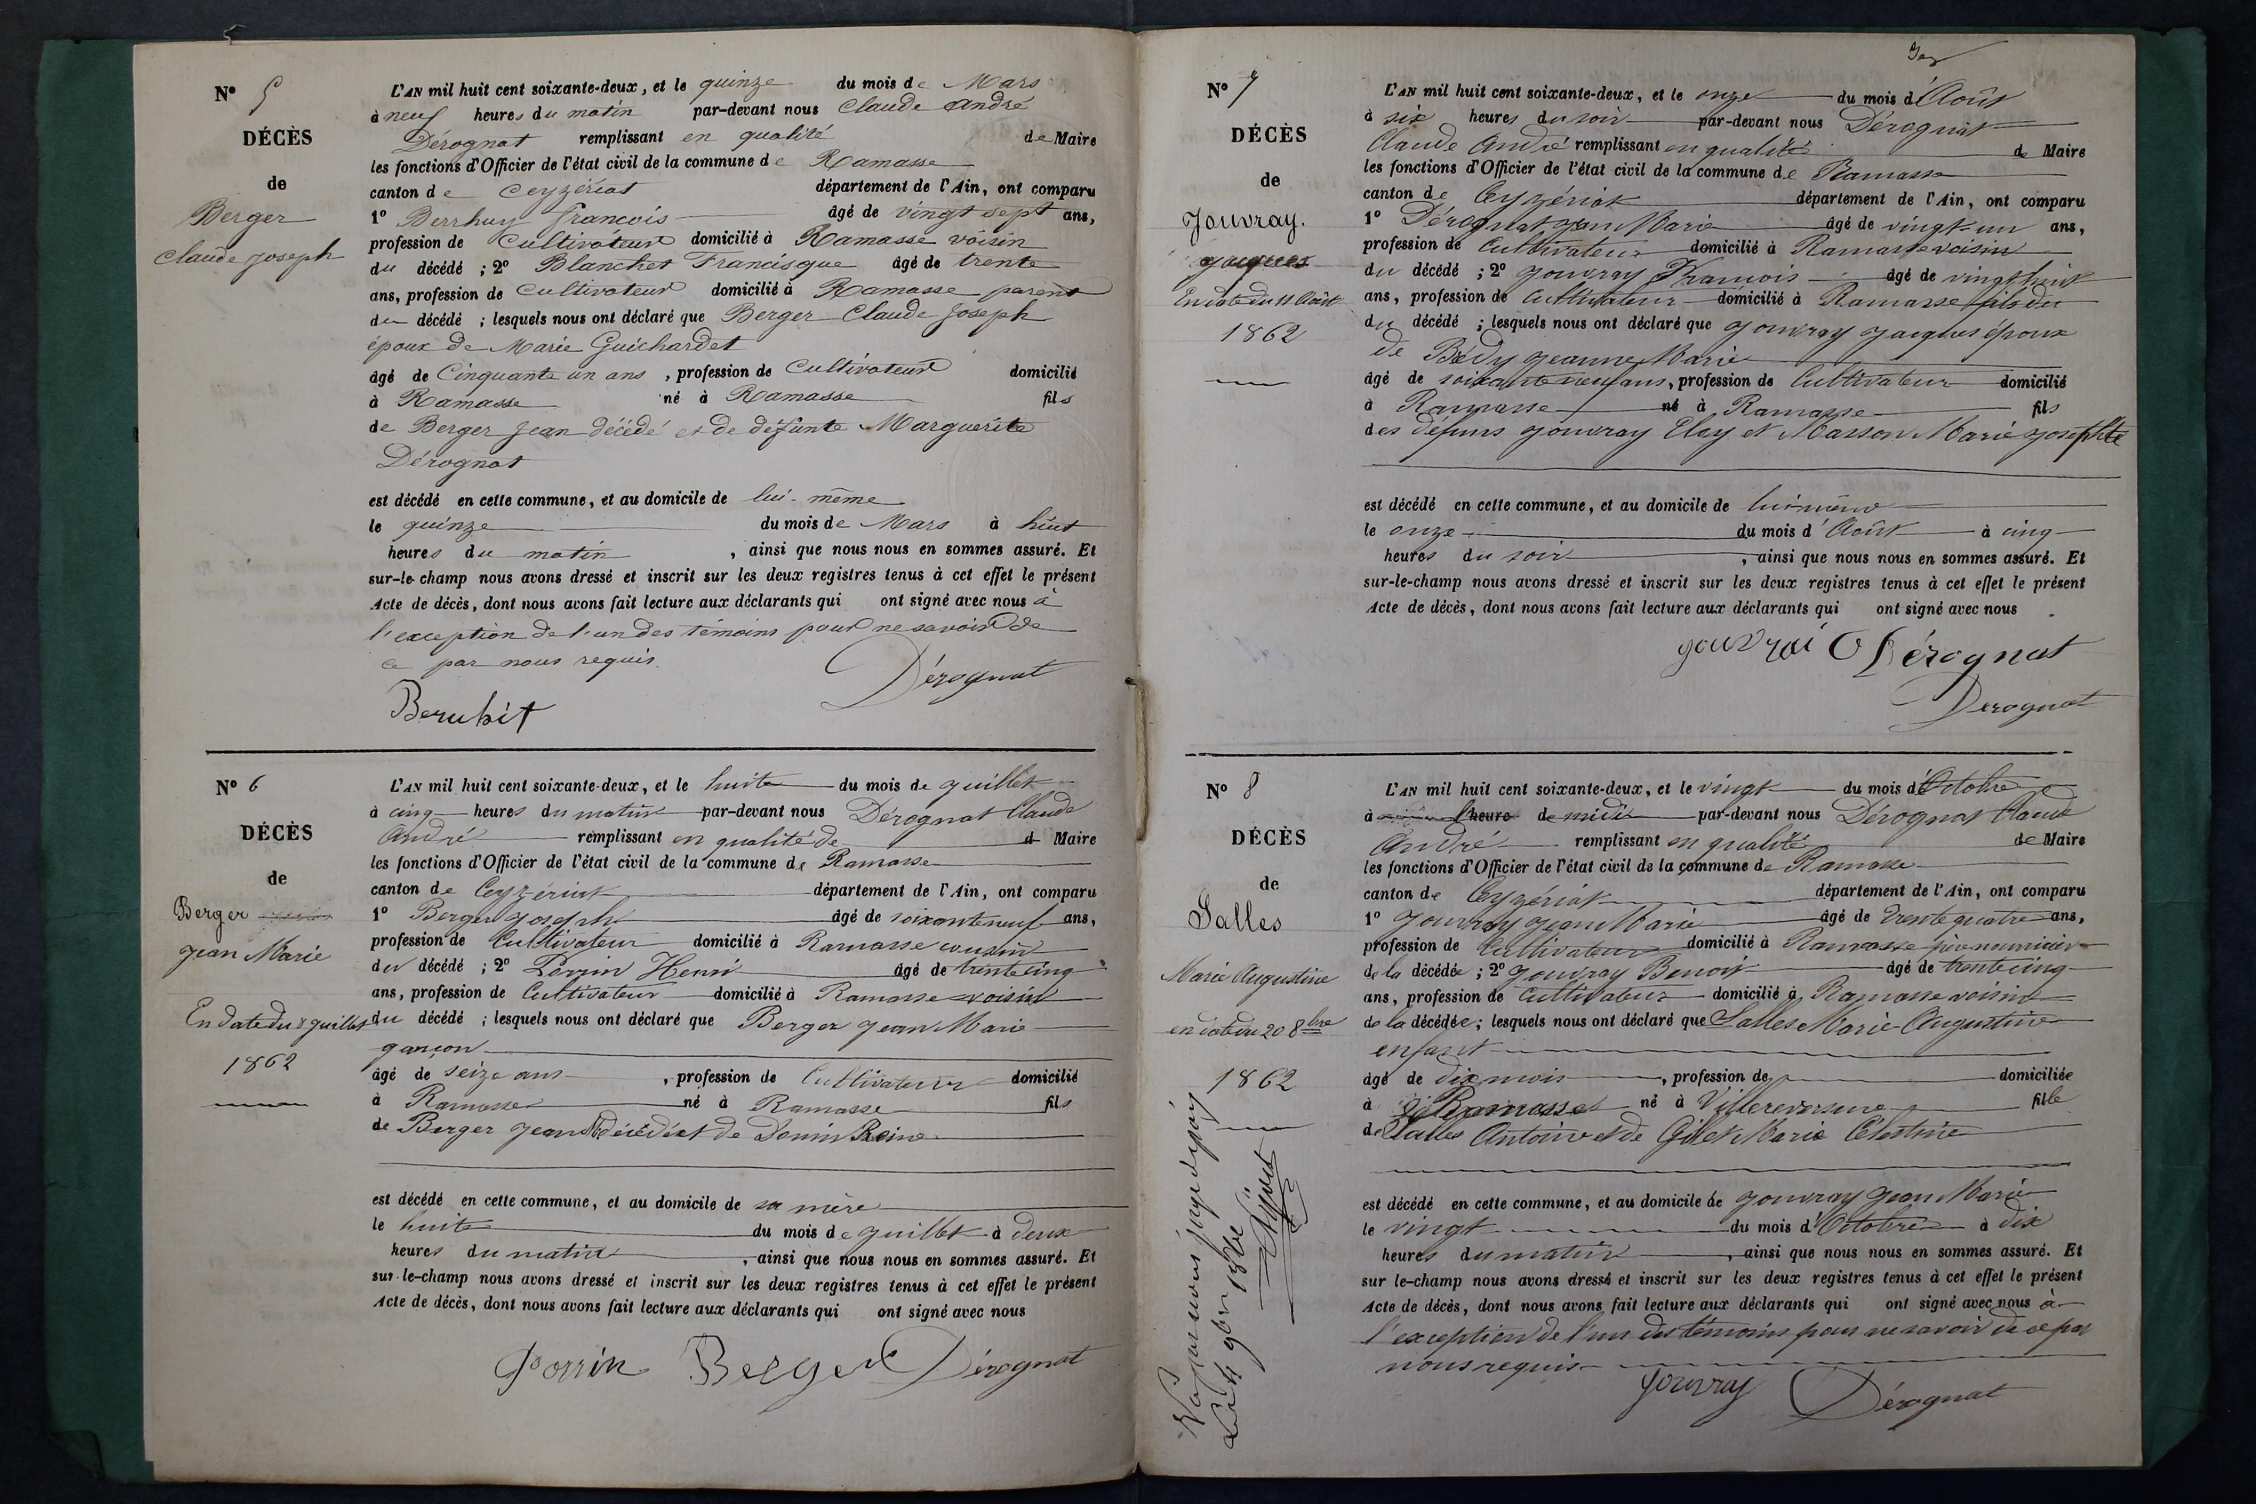 N° 5
DÉCÈS
de
Berger
Claude Joseph
L'AN mil huit cent soixante-deux, et le quinze du mois de Mars
à neuf heures du matin par-devant nous Claude André
Dérognat remplissant en qualité de Maire
les fonctions d'Officier de l'état civil de la commune de Ramasse
canton de Ceyzériat département de l'Ain, ont comparu
1° Berrhuy françois âgé de vingt sept ans,
profession de Cultivateur domicilié à Ramasse voisin
du décédé ; 2° Blanchet Francisque âgé de trente
ans, profession de Cultivateur domicilié à Ramasse parent
du décédé ; lesquels nous ont déclaré que Berger Claude Joseph
époux de Marie Guichardet
âgé de Cinquante un ans, profession de Cultivateur domicilié
à Ramasse né à Ramasse fils
de Berger Jean décédé et de défunte Marguerite
Dérognat
est décédé en cette commune, et au domicile de lui-même
le quinze du mois de Mars à huit
heures du matin, ainsi que nous nous en sommes assuré. Et
sur-le-champ nous avons dressé et inscrit sur les deux registres tenus à cet effet le présent
Acte de décès, dont nous avons fait lecture aux déclarants qui ont signé avec nous à
l'exception de l'un des témoins pour ne savoir de
ce par nous requis
Dérognat
Beruhit
N° 6
DÉCÈS
de
Berger
Jean Marie
En date du 8 Juillet
1862
L'AN mil huit cent soixante-deux, et le huite du mois de Juillet
à cinq heures du matin par-devant nous Dérognat Claude
André remplissant en qualité de d Maire
les fonctions d'Officier de l'état civil de la commune de Ramasse
canton de Ceyzériat département de l'Ain, ont comparu
1° Berger Joseph âgé de soixante neuf ans,
profession de Cultivateur domicilié à Ramasse cousin
du décédé ; 2° Perrin Henri âgé de trente cinq
ans, profession de Cultivateur domicilié à Ramasse voisin
du décédé ; lesquels nous ont déclaré que Berger Jean Marie
garçon
âgé de seize ans, profession de Cultivateur domicilié
à Ramasse né à Ramasse fils
de Berger Jean décédé et de Reine
est décédé en cette commune, et au domicile de sa mère
le huite du mois de Juillet à deux
heures du matin, ainsi que nous nous en sommes assuré. Et
sur-le-champ nous avons dressé et inscrit sur les deux registres tenus à cet effet le présent
Acte de décès, dont nous avons fait lecture aux déclarants qui ont signé avec nous
Perrin Berger Dérognat
N° 7
DÉCÈS
de
Jouvray.
Jacques
En date du 11 Août
1862
L'AN mil huit cent soixante-deux, et le onze du mois d'Août
à six heures du soir par-devant nous Dérognat
Claude André remplissant en qualité de Maire
les fonctions d'Officier de l'état civil de la commune de Ramasse
canton de Ceyzériat département de l'Ain, ont comparu
1° Dérognat Jean Marie âgé de vingt un ans,
profession de Cultivateur domicilié à Ramasse voisin
du décédé ; 2° Jouvray François âgé de vingt huit
ans, profession de Cultivateur domicilié à Ramasse fils du
du décédé ; lesquels nous ont déclaré que Jouvray Jacques époux
de Bédy Jeanne Marie
âgé de soixante neuf ans, profession de Cultivateur domicilié
à Ramasse né à Ramasse fils
des défunts Jouvray Clay et Masson Marie Josephte
est décédé en cette commune, et au domicile de lui même
le onze du mois d'Août à cinq
heures du soir, ainsi que nous nous en sommes assuré. Et
sur-le-champ nous avons dressé et inscrit sur les deux registres tenus à cet effet le présent
Acte de décès, dont nous avons fait lecture aux déclarants qui ont signé avec nous
jouvrai Dérognat
Derognat
N° 8
DÉCÈS
de
Salles
Marie Augustine
en date du 20 8bre
1862
L'AN mil huit cent soixante-deux, et le vingt du mois d'Octobre
à heure de midi par-devant nous Dérognat Claude
André remplissant en qualité de Maire
les fonctions d'Officier de l'état civil de la commune de Ramasse
canton de Ceyzériat département de l'Ain, ont comparu
1° Jouvray Jean Marie âgé de trente quatre ans,
profession de Cultivateur domicilié à Ramasse père nourricier
de la décédée ; 2° Jouvray Benoit âgé de trente cinq
ans, profession de Cultivateur domicilié à Ramasse voisin
de la décédée ; lesquels nous ont déclaré que Salles Marie Augustine
enfant
âgé de dix mois, profession de domiciliée
à Ramasse né à Villereversure fille
de Salles Antoine et de Gillet Marie Célestine
est décédé en cette commune, et au domicile de Jouvray Jean Marie
le vingt du mois d'Octobre à dix
heures du matin, ainsi que nous nous en sommes assuré. Et
sur le-champ nous avons dressé et inscrit sur les deux registres tenus à cet effet le présent
Acte de décès, dont nous avons fait lecture aux déclarants qui ont signé avec nous à
l'exception de l'un des témoins pour ne savoir de ce par
nous requis
Jouvray Dérognat